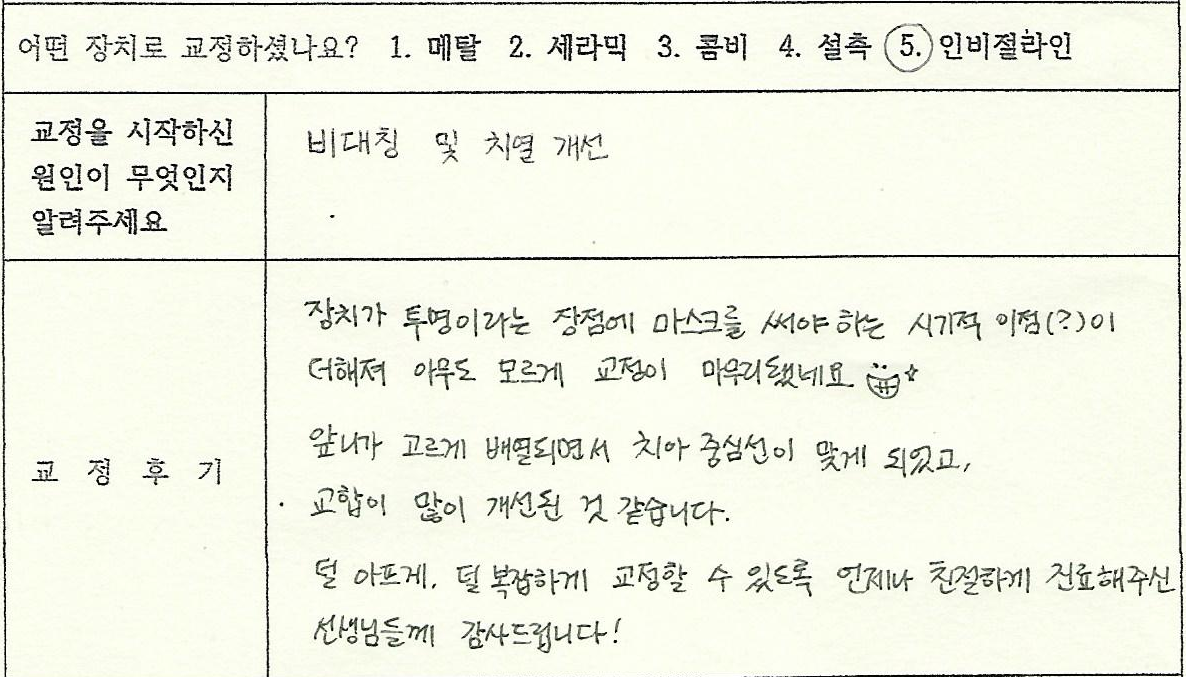 어떤 장치로 교정하셨나요? 1. 메탈 2. 세라믹 3. 콤비 4. 설측 5. 인비절라인
교정을 시작하신
원인이 무엇인지
알려주세요
비대칭 및 치열 개선
교 정 후 기
장치가 투명이라는 장점에 마스크를 써야 하는 시기적 이점(?)이
더해져 아무도 모르게 교정이 마무리 됐네요
앞니가 고르게 배열되면서 치아 중심선이 맞게 되었고,
교합이 많이 개선된 것 같습니다.
덜 아프게, 덜 복잡하게 교정할 수 있도록 언제나 친절하게 진료해주신
선생님들께 감사드립니다!